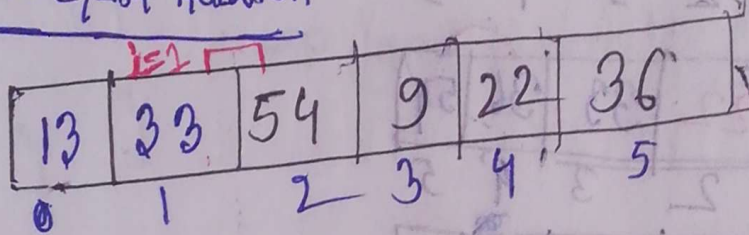 i=1
13 33 54 9 22 36
0 1 2 3 4 5